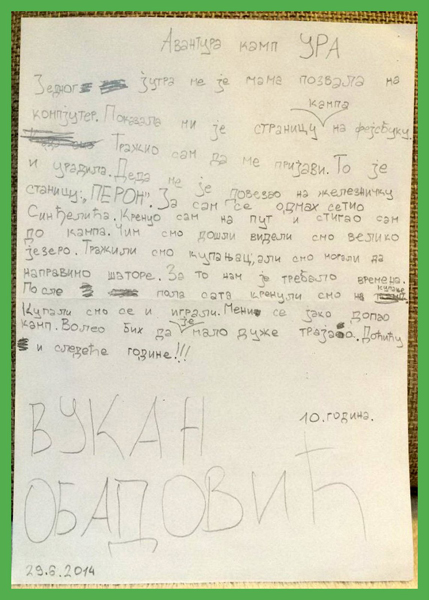 Авантура камп УРА
Једног јутра ме је мама позвала на
компјутер. Показала ми је страницу кампа на фејсбуку.
Тражио сам да ме пријави. То је
и урадила. Деда ме је повезао на железничку
станицу: „ПЕРОН“. За сам се одмах сетио
Синђелића. Кренуо сам на пут и стигао сам
до кампа. Чим смо дошли видели смо велико
језеро. Тражили смо купањац, али смо морали да
направимо шаторе. За то нам је требало времена.
После пола сата кренули смо на купање
Купали смо се и играли. Мени се јако допао
камп. Волео бих да је мало дуже трајао. Доћићу
и следеће године!!!
10. година.
ВУКАН
ОБАДОВИЋ
29.6.2014